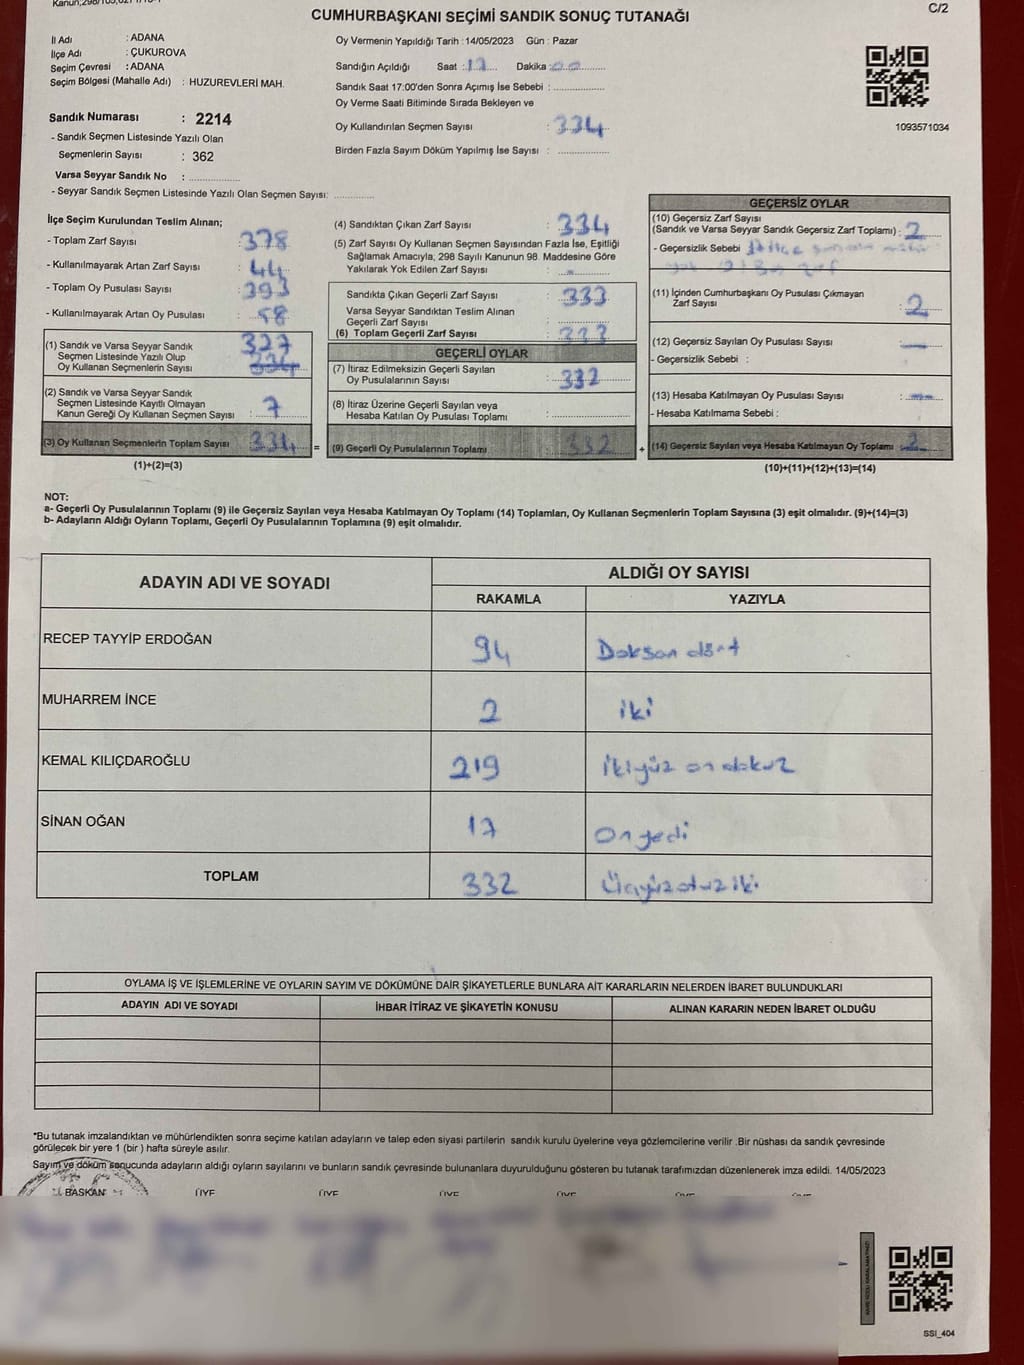 CUMHURBAŞKANI SEÇİMİ SANDIK SONUÇ TUTANAĞI
C/2
İl Adı : ADANA
İlçe Adı : ÇUKUROVA
Seçim Çevresi : ADANA
Seçim Bölgesi (Mahalle Adı) : HUZUREVLERİ MAH.
Sandık Numarası : 2214
- Sandık Seçmen Listesinde Yazılı Olan
Seçmenlerin Sayısı : 362
Varsa Seyyar Sandık No :
- Seyyar Sandık Seçmen Listesinde Yazılı Olan Seçmen Sayısı:
Oy Vermenin Yapıldığı Tarih : 14/05/2023 Gün : Pazar
Sandığın Açıldığı Saat : 17 Dakika : 00
Sandık Saat 17:00'den Sonra Açımış İse Sebebi :
Oy Verme Saati Bitiminde Sırada Bekleyen ve
Oy Kullandırılan Seçmen Sayısı : 334
Birden Fazla Sayım Döküm Yapılmış İse Sayısı :
1093571034
İlçe Seçim Kurulundan Teslim Alınan;
- Toplam Zarf Sayısı : 378
- Kullanılmayarak Artan Zarf Sayısı : 44
- Toplam Oy Pusulası Sayısı : 393
- Kullanılmayarak Artan Oy Pusulası : 58
(1) Sandık ve Varsa Seyyar Sandık
Seçmen Listesinde Yazılı Olup
Oy Kullanan Seçmenlerin Sayısı 327
334
(2) Sandık ve Varsa Seyyar Sandık
Seçmen Listesinde Kayıtlı Olmayan
Kanun Gereği Oy Kullanan Seçmen Sayısı : 7
(3) Oy Kullanan Seçmenlerin Toplam Sayısı 334 =
(1)+(2)=(3)
(4) Sandıktan Çıkan Zarf Sayısı : 334
(5) Zarf Sayısı Oy Kullanan Seçmen Sayısından Fazla İse, Eşitliği
Sağlamak Amacıyla, 298 Sayılı Kanunun 98. Maddesine Göre
Yakılarak Yok Edilen Zarf Sayısı :
Sandıkta Çıkan Geçerli Zarf Sayısı : 333
Varsa Seyyar Sandıktan Teslim Alınan
Geçerli Zarf Sayısı :
(6) Toplam Geçerli Zarf Sayısı : 333
GEÇERLİ OYLAR
(7) İtiraz Edilmeksizin Geçerli Sayılan
Oy Pusulalarının Sayısı : 332
(8) İtiraz Üzerine Geçerli Sayılan veya
Hesaba Katılan Oy Pusulası Toplamı :
(9) Geçerli Oy Pusulalarının Toplamı : 332 +
GEÇERSİZ OYLAR
(10) Geçersiz Zarf Sayısı
(Sandık ve Varsa Seyyar Sandık Geçersiz Zarf Toplamı) : 2
- Geçersizlik Sebebi :
(11) İçinden Cumhurbaşkanı Oy Pusulası Çıkmayan
Zarf Sayısı : 2
(12) Geçersiz Sayılan Oy Pusulası Sayısı : —
- Geçersizlik Sebebi :
(13) Hesaba Katılmayan Oy Pusulası Sayısı : —
- Hesaba Katılmama Sebebi :
(14) Geçersiz Sayılan veya Hesaba Katılmayan Oy Toplamı : 2
(10)+(11)+(12)+(13)=(14)
NOT:
a- Geçerli Oy Pusulalarının Toplamı (9) ile Geçersiz Sayılan veya Hesaba Katılmayan Oy Toplamı (14) Toplamları, Oy Kullanan Seçmenlerin Toplam Sayısına (3) eşit olmalıdır. (9)+(14)=(3)
b- Adayların Aldığı Oyların Toplamı, Geçerli Oy Pusulalarının Toplamına (9) eşit olmalıdır.
ADAYIN ADI VE SOYADI
ALDIĞI OY SAYISI
RAKAMLA YAZIYLA
RECEP TAYYİP ERDOĞAN 94 Doksan dört
MUHARREM İNCE 2 iki
KEMAL KILIÇDAROĞLU 219 ikiyüz on dokuz
SİNAN OĞAN 17 On yedi
TOPLAM 332 Üçyüz otuz iki
OYLAMA İŞ VE İŞLEMLERİNE VE OYLARIN SAYIM VE DÖKÜMÜNE DAİR ŞİKAYETLERLE BUNLARA AİT KARARLARIN NELERDEN İBARET BULUNDUKLARI
ADAYIN ADI VE SOYADI İHBAR İTİRAZ VE ŞİKAYETİN KONUSU ALINAN KARARIN NEDEN İBARET OLDUĞU
*Bu tutanak imzalandıktan ve mühürlendikten sonra seçime katılan adayların ve talep eden siyasi partilerin sandık kurulu üyelerine veya gözlemcilerine verilir .Bir nüshası da sandık çevresinde
görülecek bir yere 1 (bir ) hafta süreyle asılır.
Sayım ve döküm sonucunda adayların aldığı oyların sayılarını ve bunların sandık çevresinde bulunanlara duyurulduğunu gösteren bu tutanak tarafımızdan düzenlenerek imza edildi. 14/05/2023
BAŞKAN ÜYE ÜYE ÜYE ÜYE ÜYE ÜYE
SSI_404